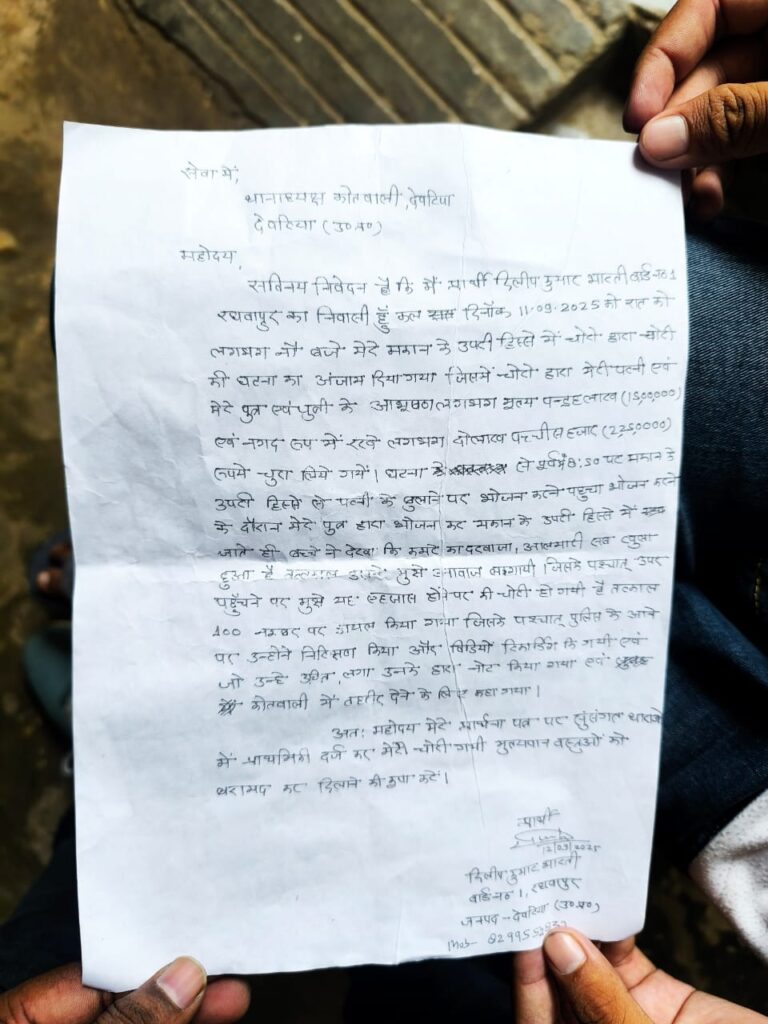 सेवा में,
थानाध्यक्ष कोतवाली, देवरिया
देवरिया (उ०प्र०)
महोदय,
सविनय निवेदन है कि मैं प्रार्थी दिलीप कुमार भारती वार्ड न० 1
का निवासी हूँ कल दिनाँक 11.09.2025 को रात को
लगभग नौ बजे मेरे मकान के उपरी हिस्से में चोरो द्वारा चोरी
की घटना का अंजाम दिया गया जिसमें चोरो द्वारा मेरी पत्नी एवं
मेरे पुत्र एवं पुत्री के आभूषण लगभग मूल्य पन्द्रह लाख (15,00,000)
एवं नगद रूप में रखे लगभग दो लाख पच्चीस हजार (2,25,0000)
रूपये चुरा लिये गये। घटना से पूर्व 8:50 पर मकान के
उपरी हिस्से से पत्नी के बुलाने पर भोजन करने पहुचा भोजन करने
के दौरान मेरे पुत्र द्वारा भोजन कर मकान के उपरी हिस्से में
जाते ही बच्चे ने देखा कि कमरे का दरवाजा, आलमारी सब खुला
हुआ है तत्काल उसने मुझे आवाज लगायी। जिसके पश्चात् उपर
पहुँचने पर मुझे यह एहसास होने पर की चोरी हो गयी है तत्काल
100 नम्बर पर डायल किया गया जिसके पश्चात् पुलिस के आने
पर उन्होने निरिक्षण किया और विडियो रिकार्डिंग कि गयी एवं
जो उन्हे उचित लगा उनके द्वारा नोट किया गया एवं
कोतवाली में तहरीर देने के लिए कहा गया।
अतः महोदय मेरे प्रार्थना पत्र पर सुसंगत धाराओ
में प्राथमिकी दर्ज कर मेरी चोरी गयी मुल्यवान वस्तुओं को
बरामद कर दिलाने की कृपा करें।
प्रार्थी
12/09/2025
दिलीप कुमार भारती
वार्ड न० 1,
जनपद - देवरिया (उ०प्र०)
Mob-